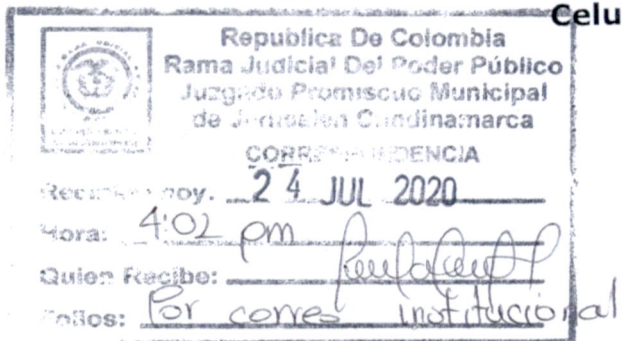 Celu
Republica De Colombia
Rama Judicial Del Poder Público
Juzgado Promiscuo Municipal
de Jerusalen Cundinamarca
CORRESPONDENCIA
Recibido hoy. 24 JUL 2020
Hora: 4:02 pm
Quien Recibe:
Folios: Por correo institucional